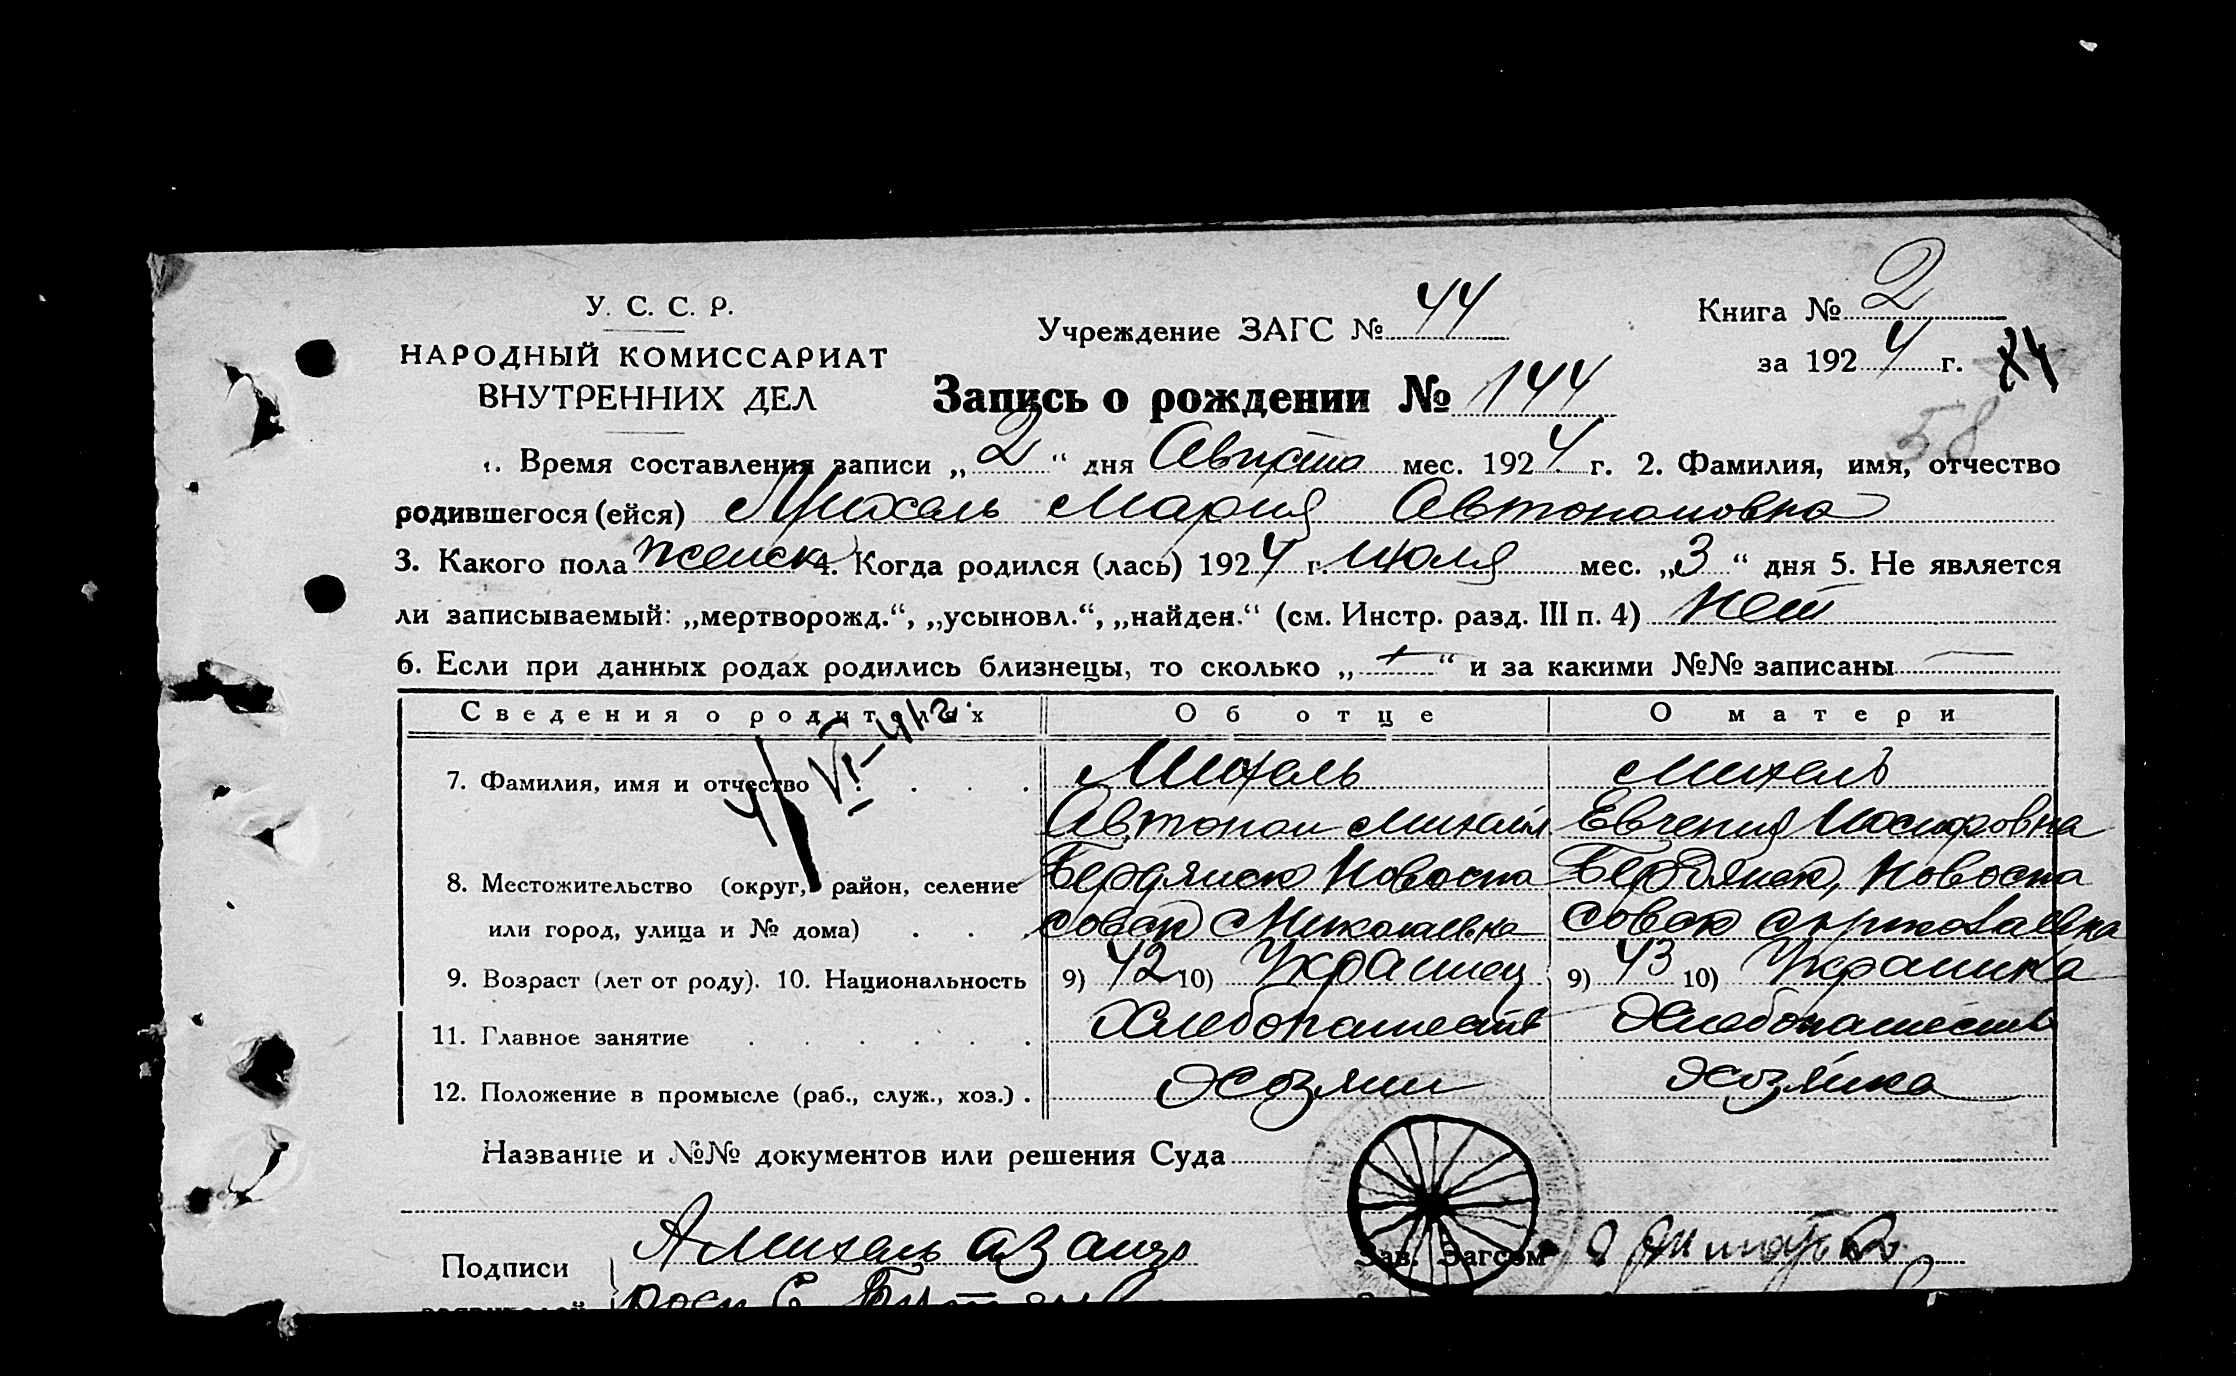 У. С. С. Р.
НАРОДНЫЙ КОМИССАРИАТ
ВНУТРЕННИХ ДЕЛ
Учреждение ЗАГС № 44
Книга № 2
за 1924 г.
58
Запись о рождении № 144
1. Время составления записи „2“ дня Августа мес. 1924 г. 2. Фамилия, имя, отчество
родившегося (ейся) Михаль Мария Автономовна
3. Какого пола женск 4. Когда родился (лась) 1924 г. Июля мес. „3“ дня 5. Не является
ли записываемый: „мертворожд.“, „усыновл.“, „найден.“ (см. Инстр. разд. III п. 4) Нет
6. Если при данных родах родились близнецы, то сколько „—“ и за какими №№ записаны —
Сведения о родителях Об отце О матери
7. Фамилия, имя и отчество . . . Михаль Михаль
Автоном Михайл Евгения Иосифовна
8. Местожительство (округ, район, селение Бердянск Новоспа Бердянск, Новоспа
или город, улица и № дома) . . . совск Николаевка совск
9. Возраст (лет от роду). 10. Национальность 9) 42 10) Украинец 9) 43 10) Украинка
11. Главное занятие . . . . . . Хлебопашеств Хлебопашеств
12. Положение в промысле (раб., служ., хоз.) . Хозяин хозяйка
Название и №№ документов или решения Суда
Подписи АМихаль
Зав. Загсом